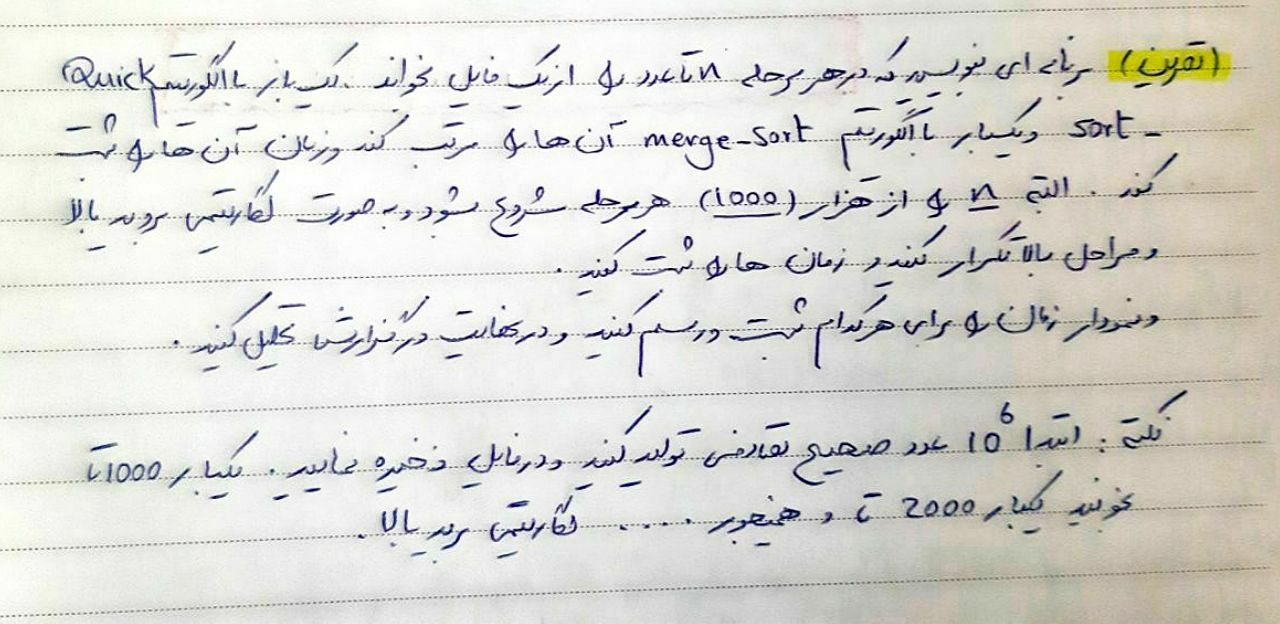 (تمرین) برنامه ای بنویسید که در هر مرحله n تا عدد را از یک فایل بخواند. یک بار با الگوریتم Quick
- sort و یکبار با الگوریتم merge-sort آن ها را مرتب کند و زمان آن ها را ثبت
کند. البته n را از هزار (1000) هر مرحله شروع بشود و به صورت لگاریتمی بروید بالا
و مراحل بالا تکرار کنید و زمان ها را ثبت کنید.
و نمودار زمان را برای هر کدام ثبت و رسم کنید و در نهایت در گزارش تحلیل کنید.
نکته: ابتدا 10⁶ عدد صحیح تصادفی تولید کنید و در فایل ذخیره نمایید. یکبار 1000 تا
بخونید یکبار 2000 تا و همینجور .... لگاریتمی برید بالا.